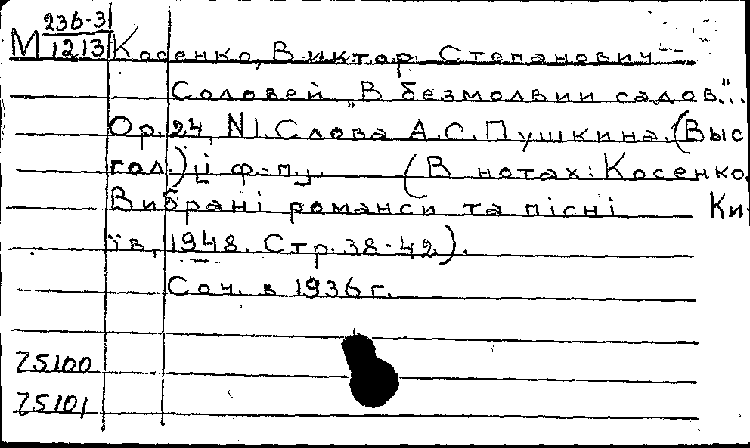 236-3
М 1213 Косенко, Виктор Степанович
Соловей „В безмолвии садов"...
Op. 24, N1. Слова А.С. Пушкина. (Выс
гол.) и ф-п. (В нотах: Косенко.
Вибрані романси та пісні Ки
їв, 1948. Стр. 38-42).
Соч. в 1936 г.
75100
75101